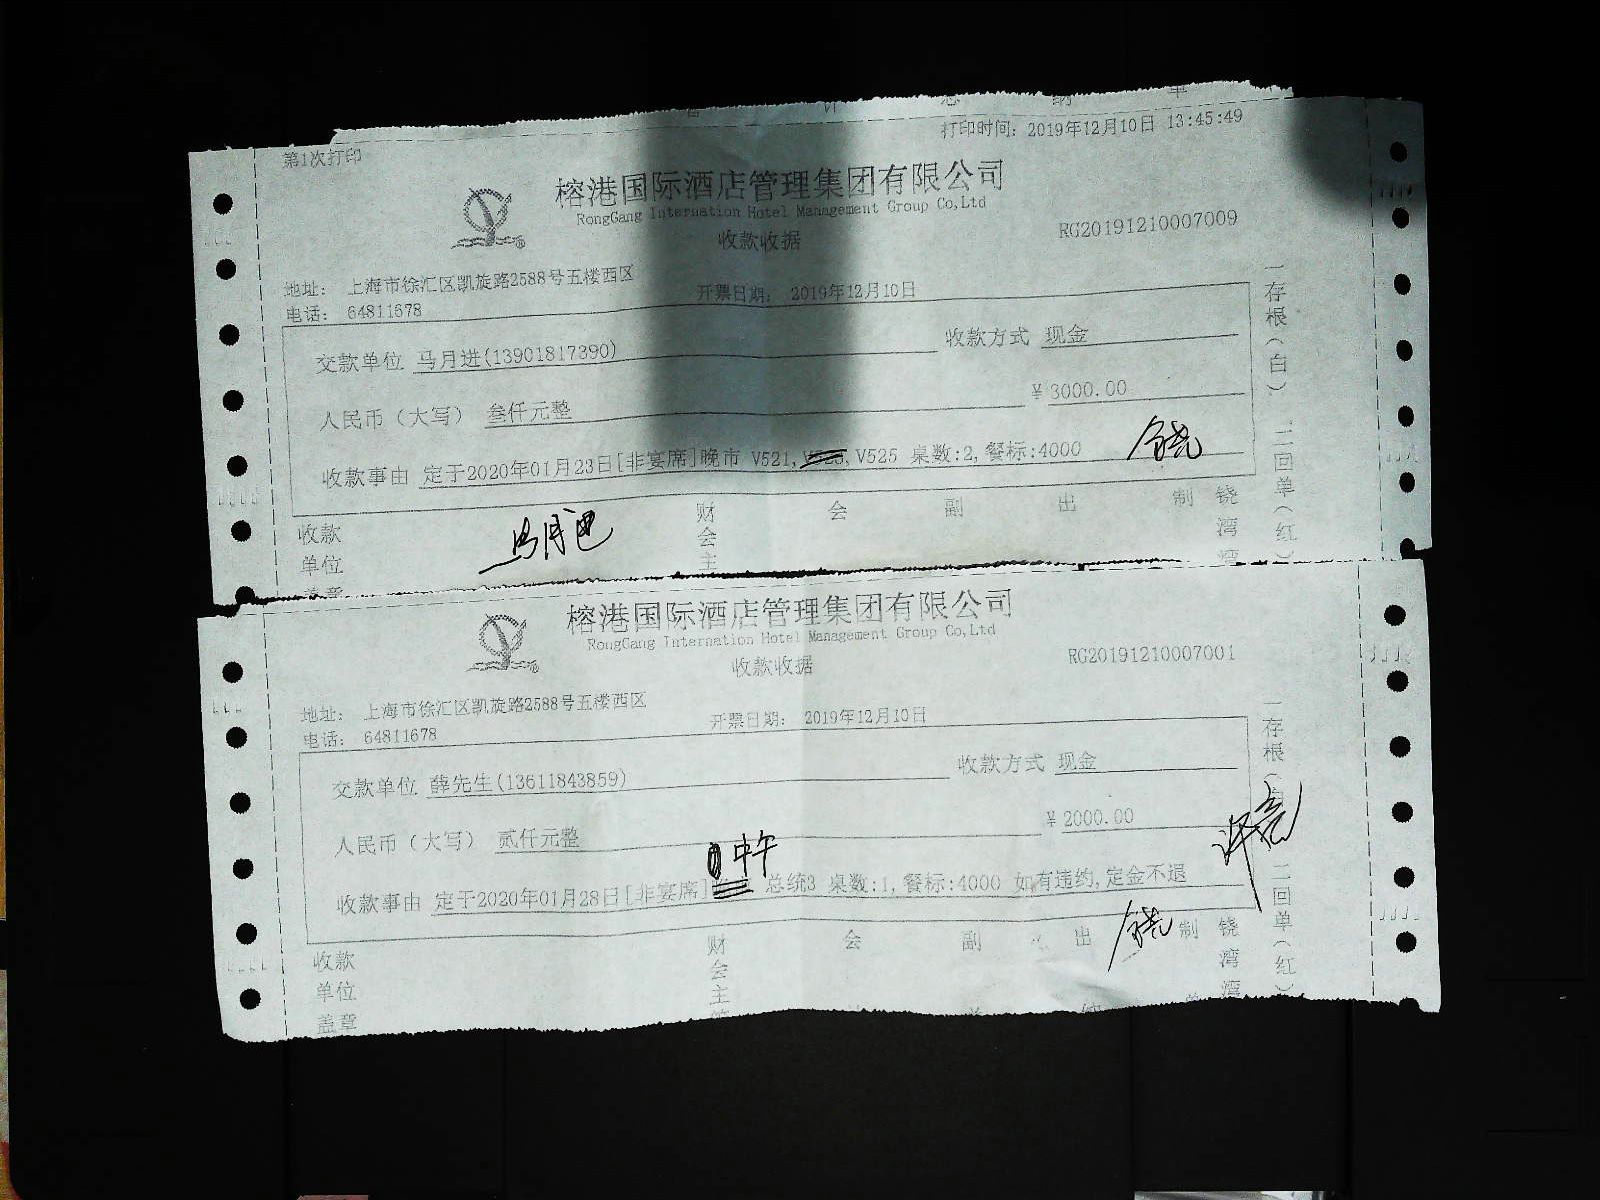 打印时间: 2019年12月10日 13:45:49
第1次打印
榕港国际酒店管理集团有限公司
RongGang Internation Hotel Management Group Co,Ltd
收款收据
RG20191210007009
地址: 上海市徐汇区凯旋路2588号五楼西区
开票日期: 2019年12月10日
电话: 64811678
交款单位 马月进(13901817390) 收款方式 现金
人民币（大写） 叁仟元整 ¥3000.00
收款事由 定于2020年01月23日[非宴席]晚市 V521, V525 桌数:2,餐标:4000
一存根(白)
二回单(红)
收款单位
财会主
会 副 出 制 饶湾湾
榕港国际酒店管理集团有限公司
RongGang Internation Hotel Management Group Co,Ltd
收款收据
RG20191210007001
地址: 上海市徐汇区凯旋路2588号五楼西区
开票日期: 2019年12月10日
电话: 64811678
交款单位 薛先生(13611843859) 收款方式 现金
人民币（大写） 贰仟元整 ¥2000.00
中午
收款事由 定于2020年01月28日[非宴席] 总统3 桌数:1,餐标:4000 如有违约,定金不退
一存根(白
二回单(红)
收款单位盖章
财会主
会 副 出 制 饶湾湾